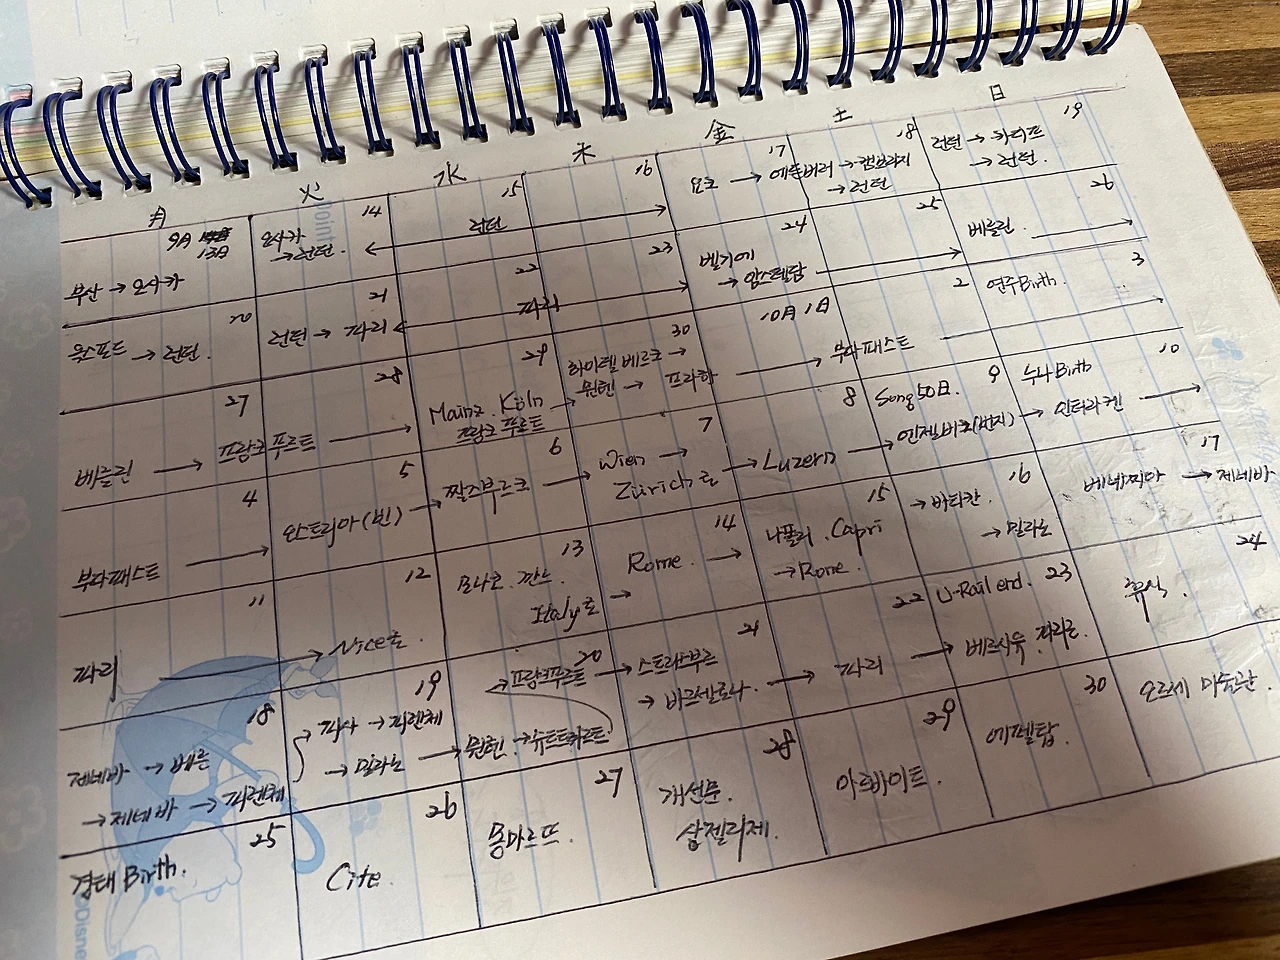 月 火 水 木 金 土 日
9月 13日
부산 → 오사카
14
오사카
→ 런던.
15
런던
16
17
요크 → 에든버러
18
→ 캠브리지
→ 런던
19
런던 → 카디프
→ 런던.
20
옥스포드
→ 런던.
21
런던 → 파리
22
파리
23
24
벨기에
→ 암스텔담
25
26
베를린.
27
베를린 → 프랑크푸르트
28
29
Mainz. Köln
프랑크푸르트
30
하이델베르크 →
뮌헨 → 프라하
10月 1日
부다페스트
2
3
연주Birth.
4
부다페스트
5
오스트리아(빈)
6
짤즈부르크
7
Wien →
Zürich로
8
→ Luzern
9
Song50日.
엔젤베르크
10
누나Birth
→ 인터라켄
11
파리
12
→ Nice로.
13
모나코. 깐느.
Italy로 →
14
Rome. →
15
나폴리. Capri
→ Rome.
16
→ 바티칸.
→ 밀라노
17
베네찌아 → 제네바
18
제네바 → 베른
→ 제네바 → 피렌체
19
→ 피사 → 피렌체
→ 밀라노
20
프랑크푸르트
→ 뮌헨 → 슈트트가르트
21
→ 스트라스부르
→ 바르셀로나.
22
→ 파리
23
U-Rail end.
→ 베르사유. 파리로.
24
휴식.
25
경태 Birth.
26
Cite.
27
몽마르뜨.
28
개선문.
샹젤리제.
29
아르바이트.
30
에펠탑.
오르세 미술관.
Point
©Disney